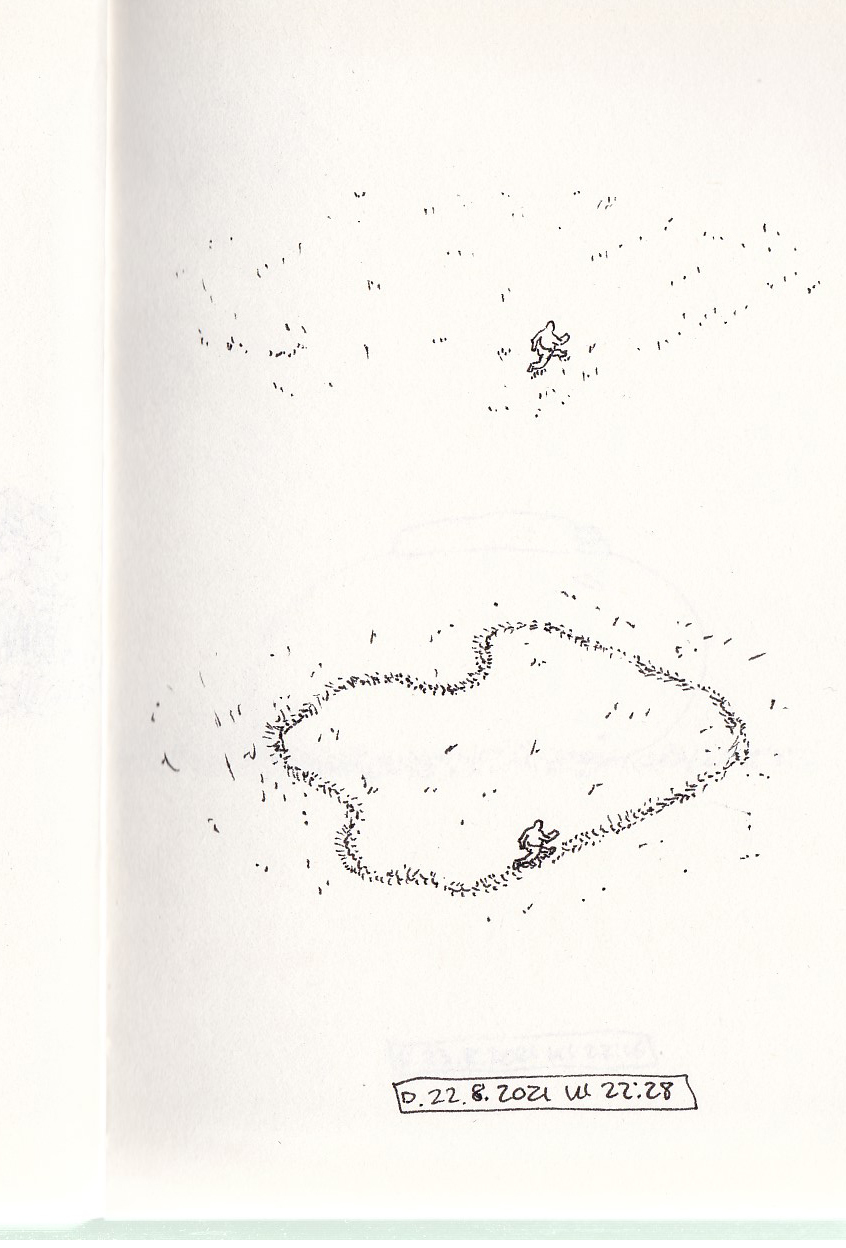 D. 22.8.2021 Ul 22:28